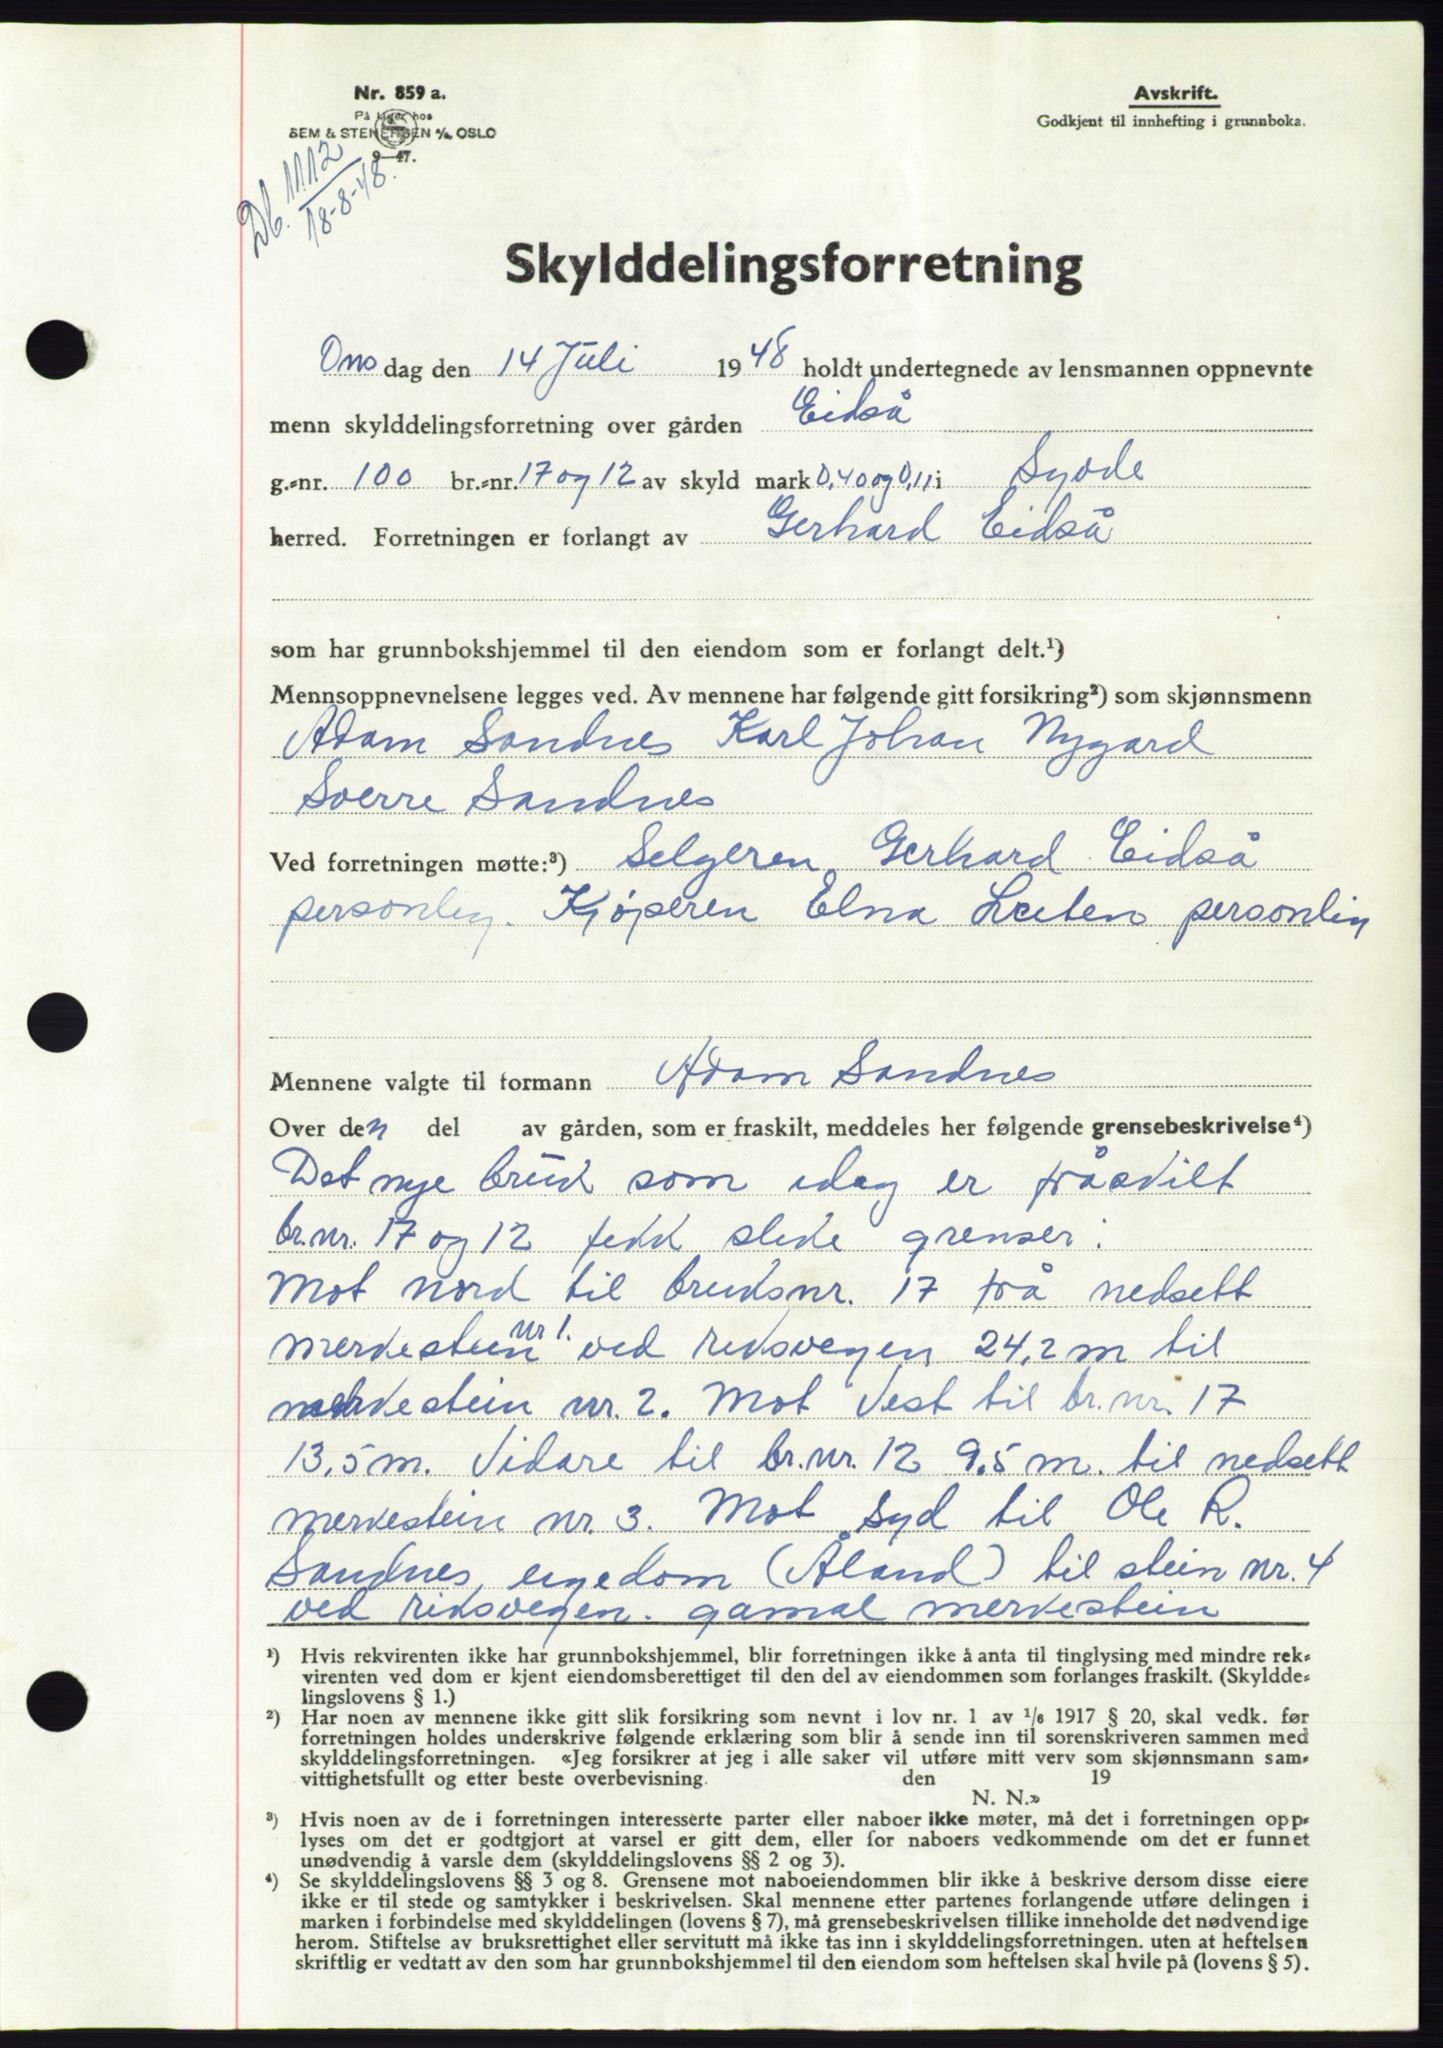 Nr. 859 a.
På lager hos
SEM & STENERSEN A/S OSLO
9—47.
Avskrift.
Godkjent til innhefting i grunnboka.
Db. 1112
18-8-48.
Skylddelingsforretning
Ons dag den 14 Juli 1948 holdt undertegnede av lensmannen oppnevnte
menn skylddelingsforretning over gården Eidså
g.-nr. 100 br.-nr. 17 og 12 av skyld mark 0,40 og 0,11 i Syvde
herred. Forretningen er forlangt av Gerhard Eidså
som har grunnbokshjemmel til den eiendom som er forlangt delt.¹)
Mennsoppnevnelsene legges ved. Av mennene har følgende gitt forsikring²) som skjønnsmenn
Adam Sandnes Karl Johan Nygard
Sverre Sandnes
Ved forretningen møtte:³) Selgeren, Gerhard Eidså
personleg. Kjøperen Elna personlig
Mennene valgte til formann Adam Sandnes
Over den del av gården, som er fraskilt, meddeles her følgende grensebeskrivelse⁴)
Det nye bruk som idag er fråskilt
br.nr. 17 og 12 fekk slike grenser:
Mot nord til bruksnr. 17 frå nedsett
merkestein nr 1. ved riksvegen 24,2 m til
merkestein nr. 2. Mot Vest til br. nr. 17
13,5 m. Vidare til br.nr. 12 9,5 m. til nedsett
merkestein nr. 3. Mot Syd til Ole R.
Sandnes, eigedom (Åland) til stein nr. 4
ved riksvegen. gamal merkestein
¹) Hvis rekvirenten ikke har grunnbokshjemmel, blir forretningen ikke å anta til tinglysing med mindre rek-
virenten ved dom er kjent eiendomsberettiget til den del av eiendommen som forlanges fraskilt. (Skyldde-
lingslovens § 1.)
²) Har noen av mennene ikke gitt slik forsikring som nevnt i lov nr. 1 av 1/6 1917 § 20, skal vedk. før
forretningen holdes underskrive følgende erklæring som blir å sende inn til sorenskriveren sammen med
skylddelingsforretningen. «Jeg forsikrer at jeg i alle saker vil utføre mitt verv som skjønnsmann sam-
vittighetsfullt og etter beste overbevisning. den 19
N. N.»
³) Hvis noen av de i forretningen interesserte parter eller naboer ikke møter, må det i forretningen opp-
lyses om det er godtgjort at varsel er gitt dem, eller for naboers vedkommende om det er funnet
unødvendig å varsle dem (skylddelingslovens §§ 2 og 3).
⁴) Se skylddelingslovens §§ 3 og 8. Grensene mot naboeiendommen blir ikke å beskrive dersom disse eiere
ikke er til stede og samtykker i beskrivelsen. Skal mennene etter partenes forlangende utføre delingen i
marken i forbindelse med skylddelingen (lovens § 7), må grensebeskrivelsen tillike inneholde det nødvendige
herom. Stiftelse av bruksrettighet eller servitutt må ikke tas inn i skylddelingsforretningen. uten at heftelsen
skriftlig er vedtatt av den som har grunnbokshjemmel til den eiendom som heftelsen skal hvile på (lovens § 5).